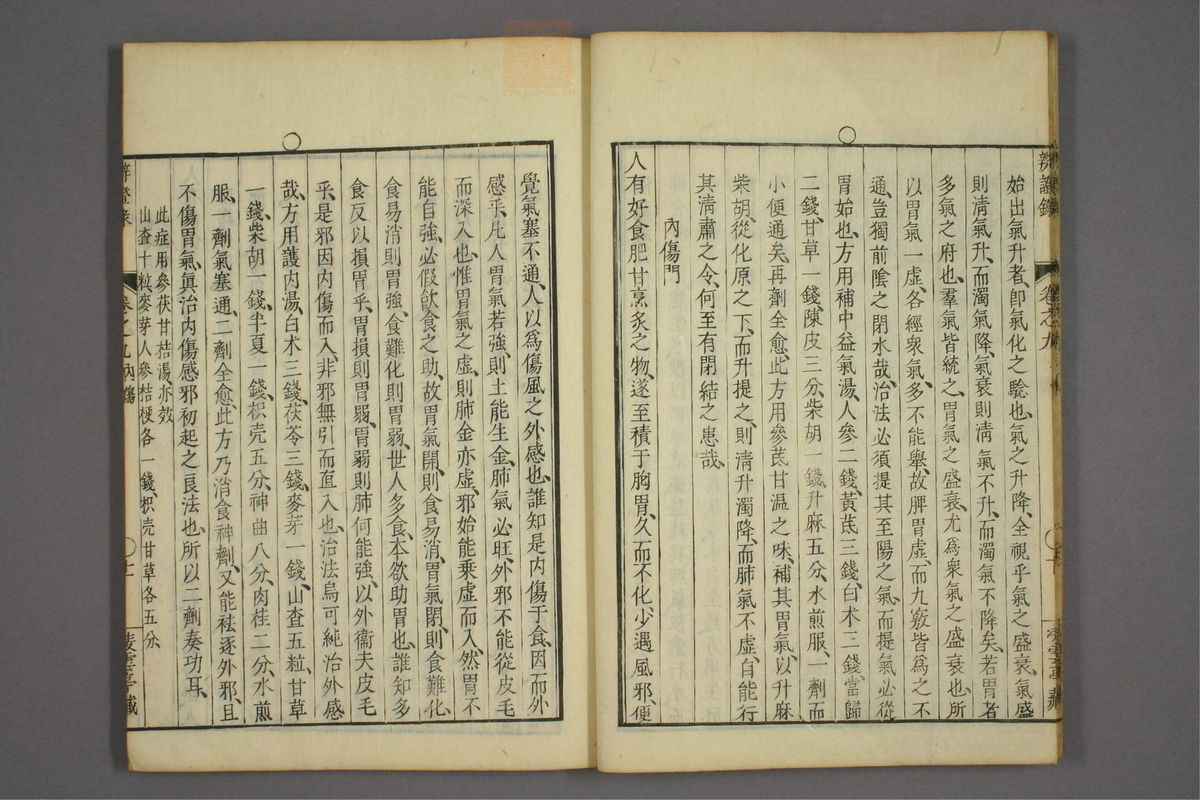 始出氣升者、卽氣化之驗也、氣之升降、全視乎氣之盛衰、氣盛
則淸氣升、而濁氣降、氣衰則淸氣不升、而濁氣不降矣、若胃者
多氣之府也、羣氣皆統之、胃氣之盛衰、尤爲衆氣之盛衰也、所
以胃氣一虛、各經衆氣、多不能舉、故脾胃虛、而九竅皆爲之不
通、豈獨前陰之閉水哉、治法必須提其至陽之氣、而提氣必從
胃始也、方用補中益氣湯、人參二錢、黃芪三錢、白术三錢、當歸
二錢、甘草一錢、陳皮三分、柴胡一錢、升麻五分、水煎服、一劑而
小便通矣、再劑全愈、此方用參芪甘温之味、補其胃氣、以升麻
柴胡、從化原之下、而升提之、則淸升濁降、而肺氣不虛、自能行
其淸肅之令、何至有閉結之患哉、
內傷門
人有好食肥甘烹炙之物、遂至積于胸胃、久而不化、少遇風邪、便
辨證錄
卷之九
覺氣塞不通、人以爲傷風之外感也、誰知是內傷于食、因而外
感乎、凡人胃氣若強、則土能生金、肺氣必旺、外邪不能從皮毛
而深入也、惟胃氣之虛、則肺金亦虛、邪始能乘虛而入、然胃不
能自強、必假飮食之助、故胃氣開、則食易消、胃氣閉、則食難化、
食易消則胃強、食難化則胃弱、世人多食、本欲助胃也、誰知多
食反以損胃乎、胃損則胃弱、胃弱則肺何能強、以外衞夫皮毛
乎、是邪因內傷而入、非邪無引而直入也、治法烏可純治外感
哉、方用護內湯、白术三錢、茯苓三錢、麥芽一錢、山查五粒、甘草
一錢、柴胡一錢、半夏一錢、枳壳五分、神曲八分、肉桂二分、水煎
服、一劑氣塞通、二劑全愈、此方乃消食神劑、又能袪逐外邪、且
不傷胃氣、眞治內傷感邪初起之良法也、所以二劑奏功耳、
此症用參茯甘桔湯、亦效
山查十粒、麥芽人參桔梗各一錢、枳壳甘草各五分
辨證錄
卷之九內傷